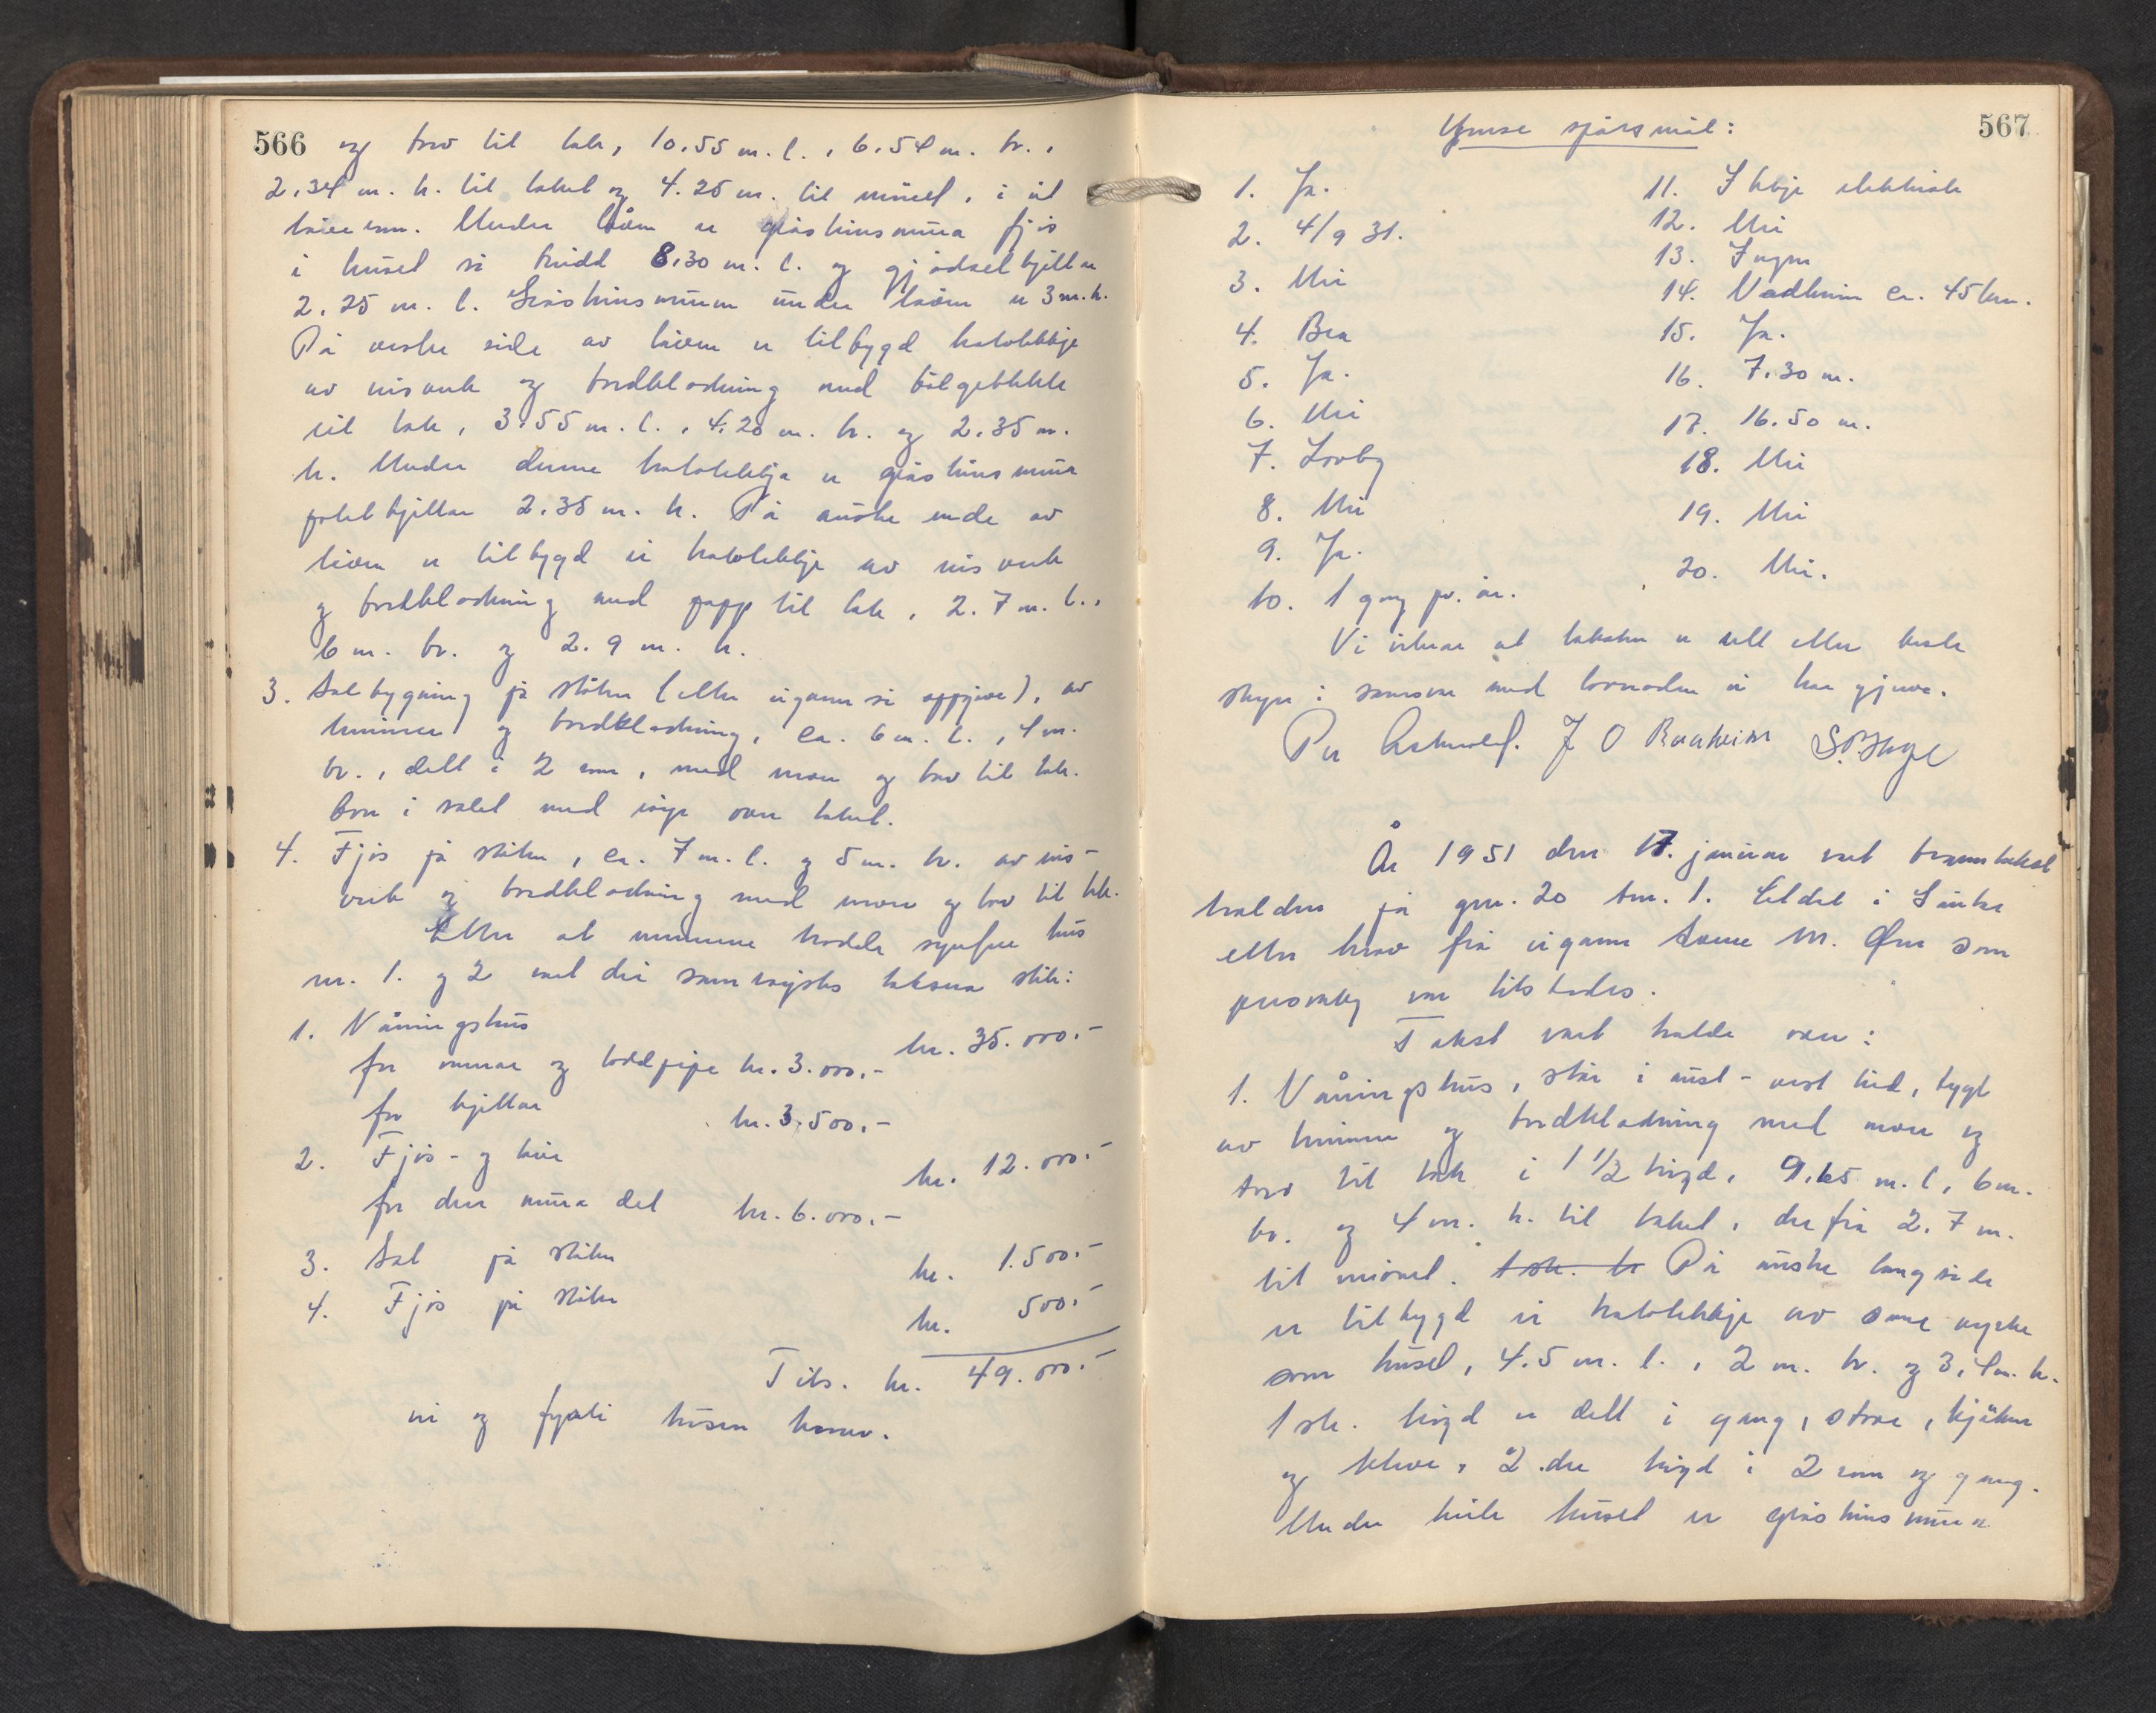 566
og torv til tak, 10.55 m. l., 6.54 m. br.,
2.34 m. h. til taket og 4.25 m. til mønet, i eit
løerom. Under løern er gråsteinsmura fjøs
i huset si breidd 8.30 m. l. og gjødselkjellar
2.25 m. l. Gråsteinsmuren under løern er 3 m. h.
På vestre side av løern er tilbygd halvtekkje
av reisverk og bordkledning med bølgeblekk
til tak, 3.55 m. l., 4.20 m. br. og 2.35 m.
h. Under denne halvtekkja er gråsteinsmura
potetkjellar 2.35 m. h. På austre ende av
løern er tilbygd ei halvtekkje av reisverk
og bordkledning med papp til tak, 2.7 m. l.,
6 m. br. og 2.9 m. h.
3. Selbygning på stølen (etter eigaren si oppgåve), av
timmer og bordkledning, ca. 6 m. l., 4 m.
br., delt i 2 rom, med near og torv til tak.
Omn i selet med røyr over taket.
4. Fjøs på stølen, ca. 7 m. l. og 5 m. br. av reis-
verk og bordkledning med never og torv til tak.
Etter at mennene hadde synfare hus
nr. 1. og 2 vart dei samrøystes taksera slik:
1. Våningshus kr. 35.000.-
for murar og teglpipe kr. 3.000.-
for kjellar kr. 3.500.-
2. Fjøs- og løe kr. 12.000.-
for den mura del kr. 6.000.-
3. Sel på stølen kr. 1.500.-
4. Fjøs på stølen kr. 500.-
Tils. kr. 49.000.-
ni og fyrti tusen kroner.
567
Ymse spørsmål:
1. Ja.
2. 4/9 31.
3. Nei
4. Bra
5. Ja.
6. Nei
7. Lovleg
8. Nei
9. Ja.
10. 1 gong pr. år.
11. Ikkje elektrisk
12. Nei
13. Ingen
14. Vadheim ca. 45 km.
15. Ja.
16. 7.30 m.
17. 16.50 m.
18. Nei
19. Nei
20. Nei.
Vi vitnar at taksten er sett etter beste
skyn i samsvar med lovnaden vi har gjeve.
Per J O Raaheim
År 1951 den 17. januar vart branntakst
halden på gnr. 20 bnr. 1. Eldal i Guler
etter krav frå eigaren M. Øen som
personleg var tilstades.
Takst vart halde over:
1. Våningshus, står i aust - vest leid, bygt
av timmer og bordkledning med never og
torv til tak i 1 1/2 høgd, 9.65 m. l, 6 m.
br. og 4 m. h. til taket, derfrå 2.7 m.
til mønet. På austre langside
er tilbygd ei halvtekkje av same vyrke
som huset, 4.5 m. l., 2 m. br. og 3.4 m. h.
1 ste. høgd er delt i gang, stove, kjøken
og kleve, 2.dre høgd i 2 rom og gang.
Under heile huset er gråsteinsmura